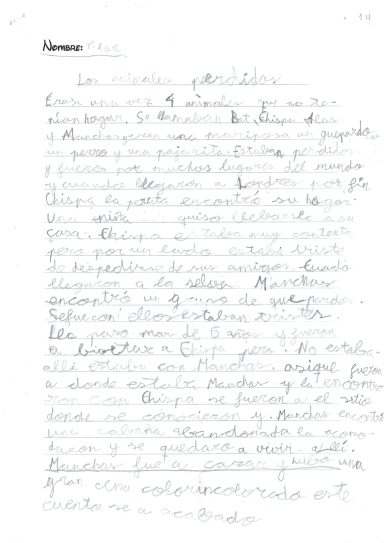 14
NOMBRE: Pilar
Los animales perdidos
Érase una vez 4 animales que no te-
nían hogar. Se llamaban Bat, Chispa Alas
y Manchas eran una mariposa un guepardo
un perro y una pajarita. Estaban perdidos
y fueron por muchos lugares del mundo
y cuando llegaron a Londres por fin
Chispa la perrita encontró su hogar.
Una niña quiso llebarla a su
casa. Chispa estaba muy contenta
pero por un lado estaba triste
de despedirse de sus amigos. Cuando
llegaron a la selva Manchas
encontró un grupo de guepardos.
Se fue con ellos estaban tristes.
Ya paso mas de 5 años y fueron
a bisitar a Chispa pero. No estaba
alli estaba con Manchas. asique fueron
a donde estaba Manchas y la encontra
ron con Chispa se fueron a el sitio
donde se conocieron y. Manchas encontró
una cabaña abandonada la acomo-
daron y se quedaro a vivir allí.
Manchas fue a cazar y hubo una
gran cena colorincolorado este
cuento se a acabado